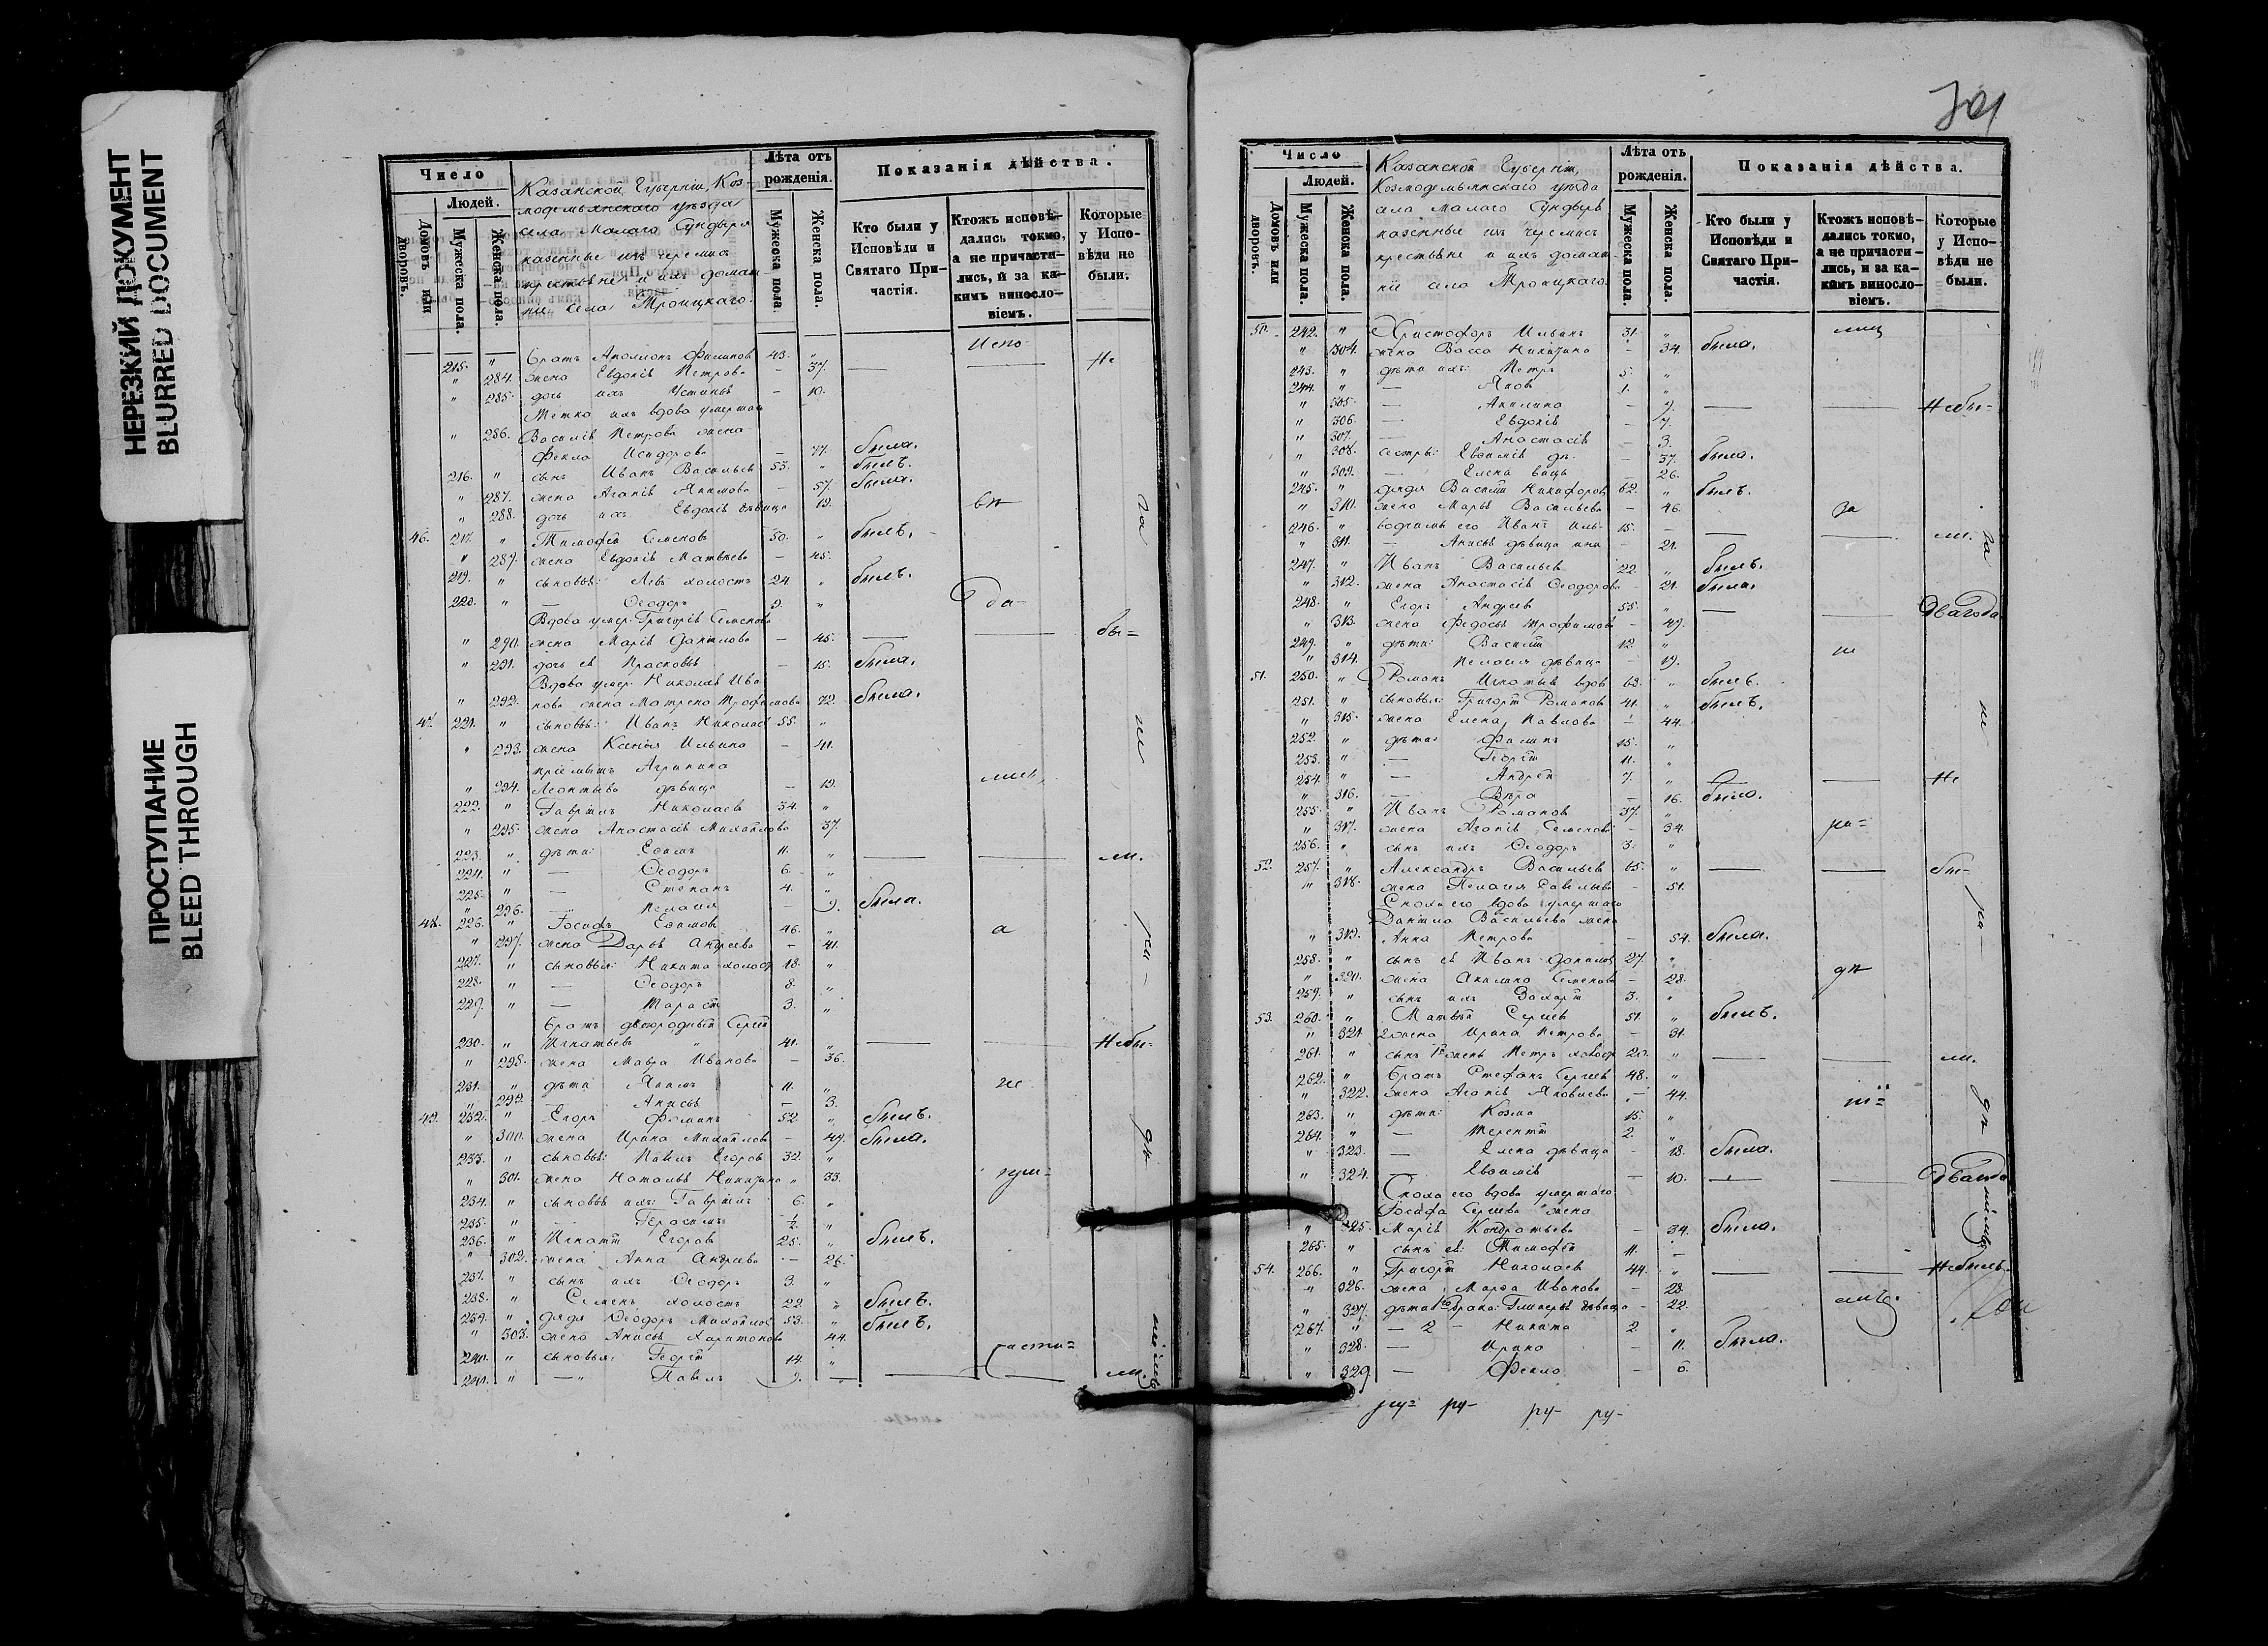 НЕРЕЗКИЙ ДОКУМЕНТ
BLURRED DOCUMENT
ПРОСТУПАНИЕ
BLEED THROUGH
Число
Людей.
Домовъ или дворовъ.
Мужеска пола.
Женска пола.
Казанской Губерніи, Коз-
модемьянскаго уѣзда
села Малаго Сундыря
казенные изъ черемис
крестьяне и ихъ домаш-
ніе села Троицкаго
Лѣта отъ рожденія.
Мужеска пола.
Женска пола.
Показанія дѣйства.
Кто были у Исповѣди и Святаго При-частія.
Ктожъ исповѣ-дались токмо, а не причасти-лись, и за ка-кимъ винсло-віемъ.
Которые у Испо-вѣди не были.
Испо-
215. " братъ Филиповъ 43. "
" 284. жена Евдокія Петрова — 37. — — Не
" 285. дочь ихъ Устинья — 10.
Матка ихъ вдова умершаго
" 286. Василія Петрова жена
Фекла Исидорова — 77. была.
216. " сынъ Иванъ Васильевъ 53. " былъ.
" 287. жена Агапія Якимова — 57. была.
" 288. дочь ихъ Евдокія дѣвица 19.
46. 217. " Тимофей Семеновъ 50. " былъ.
" 289. жена Евдокія Матвѣева — 45.
219. " сыновья: Левъ холостъ 24. " былъ.
220. " — Ѳеодоръ 9. "
да-
Вдова умер. Григорія Семенова
" 290. жена Марія Данилова — 45. — — бы=
" 291. дочь ея Прасковья — 15. была.
Вдова умер. Николая Ива
" 292. нова жена Матрена Трофимова 72. была.
47. 221. " сыновья: Иванъ Николаевъ 55. "
" 293. жена Ксенія Ильина — 41.
пріемышъ Агрипина
" 294. Леонтьева дѣвица — 19.
222. " Гавріилъ Николаевъ 34. "
" 295. жена Анастасія Михайлова 37.
223. " дѣти: Ефимъ 11. " — — ли.
224. " — Ѳеодоръ 6. "
225. " — Степанъ 4. "
" 296. — Пелагія — 9. была.
48. 226. " Іосифъ Ефимовъ 46. "
" 297. жена Дарья Андреева — 41.
227. " сыновья: Никита холост 18. "
228. " — Ѳеодоръ 8. "
229. " — Тарасій 3. "
братъ двоюродный Сергѣй
230. " Игнатьевъ " 41. " — — Небы-
" 298. жена Мавра Иванова — 36.
231. " дѣти Якимъ 11. "
" 299. — Анисья — 3.
49. 232. " Егоръ Фоминъ 52. " былъ.
" 300. жена Ирина Михайлова — 49. была.
233. " сыновья: Павелъ Егоровъ 32. "
" 301. жена Наталья Никитина " 33.
234. " сыновья ихъ: Гавріилъ 6. "
235. " — Герасимъ ½. "
236. " Игнатій Егоровъ 25. " былъ.
" 302. жена Анна Андреева — 26.
237. " сынъ ихъ Ѳеодоръ 3. "
238. " Семенъ холостъ 22. " былъ.
239. " дядя Ѳеодоръ Михайловъ 53. " былъ.
" 303. жена Анисья Харитонова 44.
части=
240. " сыновья: Георгій 14. "
241. " —" Павелъ 9. — — — ли.
Число
Людей.
Домовъ или дворовъ.
Мужеска пола.
Женска пола.
Казанской Губерніи,
Козмодемьянскаго уѣзда
села Малаго Сундыря
казенные изъ черемисъ
крестьяне и ихъ домаш-
ніе села Троицкаго
Лѣта отъ рожденія.
Мужеска пола.
Женска пола.
Показанія дѣйства.
Кто были у Исповѣди и Святаго При-частія.
Ктожъ исповѣ-дались токмо, а не причасти-лись, и за ка-кимъ винсло-віемъ.
Которые у Испо-вѣди не были.
50. 242. " Христофоръ Ильинъ 31. "
" 304. жена Васса Никитина — 34. была.
243. " дѣти ихъ: Петръ 5. "
244. " — Яковъ 1. "
" 305. — Акилина — 9. — — Небы=
" 306. — Евдокія — 7.
" 307. — Анастасія — 3.
" 308. сестры: Евфимія дѣ- — 37. была.
" 309. — Елена вица — 26.
245. " дядя Василій Никифоровъ 62. " былъ.
" 310. жена Марья Васильева — 46.
за
246. " его Иванъ 15. — — — ли.
" 311. — Анисья дѣвица — 21.
247. " Иванъ Васильевъ 22. " былъ.
" 312. жена Анастасія Ѳеодорова — 21. была.
248. " Егоръ Андреевъ 55. " — — Двагода
" 313. жена Федосья Трофимова — 49.
249. " дѣти: Василій 12. "
" 314. Пелагія дѣвица — 19.
51. 250. " Романъ Игнатьевъ вдовъ 63. " былъ.
251. " сыновья: Григорій Романовъ 41. " былъ.
" 315. жена Елена Павлова — 44.
252. " дѣти: Филипъ 15. "
253. " — Георгій 11. "
254. " — Андрей 7. " — — Не
" 316. — Вѣра — 16. была.
255. " Иванъ Романовъ 37. "
" 317. жена Агапія Семенова — 34.
256. " сынъ ихъ Ѳеодоръ 3. "
52. 257. " Александръ Васильевъ 65. " — — бы-
" 318. жена Пелагія Савельева — 51.
Сноха его вдова умершаго
Даніила Васильева жена
" 319. Анна Петрова — 54. была.
258. " сынъ ея Иванъ Даниловъ 27. "
" 320. жена Акилина Семенова — 28.
259. " сынъ ихъ Захарій 3. "
53. 260. " Матвѣй Сергѣевъ 51. " былъ.
" 321. 2 жена Ирина Петрова — 31.
261. " сынъ жены Петръ холост 20. " — — ли.
262. " братъ Стефанъ Сергѣевъ 48. "
" 322. жена Агапія Яковлева — 44.
263. " дѣти: Козма 15. "
264. " — Терентій 2. "
" 323. — Елена дѣвица — 18. была.
" 324. — Евфимія — 10. — — Двагода
Сноха его вдова умершаго
Іосифа Сергѣева жена
" 325. Марія Кондратьева — 34. была.
265. " сынъ ея: Тимофей 11. —
54. 266. " Григорій Николаевъ 44. " — — Небылъ-
" 326. жена Марѳа Иванова — 28.
" 327. дѣти брака: Гликерья дѣвица — 22.
267. " — 2 — Никита 2. "
" 328. — Ирина — 11. была.
" 329. — Фекла — 6.